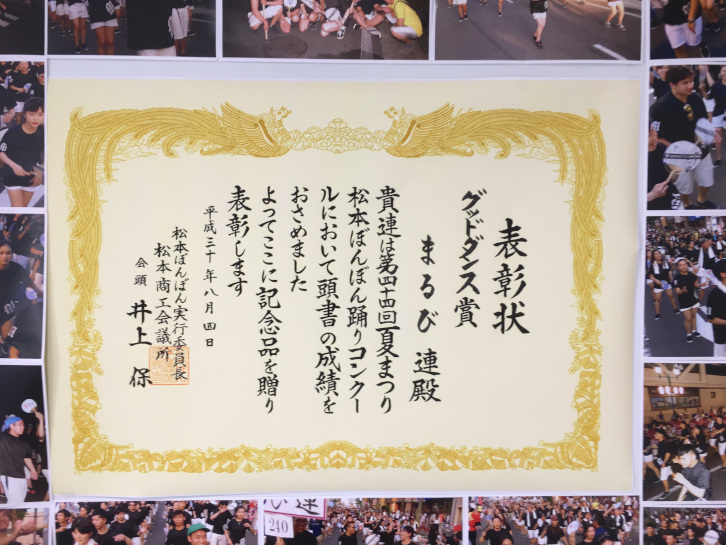 表彰状
グッドダンス賞
まるび 連殿
貴連は第四十四回夏まつり
松本ぼんぼん踊りコンクー
ルにおいて頭書の成績を
おさめました
よってここに記念品を贈り
表彰します
平成三十年八月四日
松本ぼんぼん実行委員長
松本商工会議所
会頭 井上 保
連
240